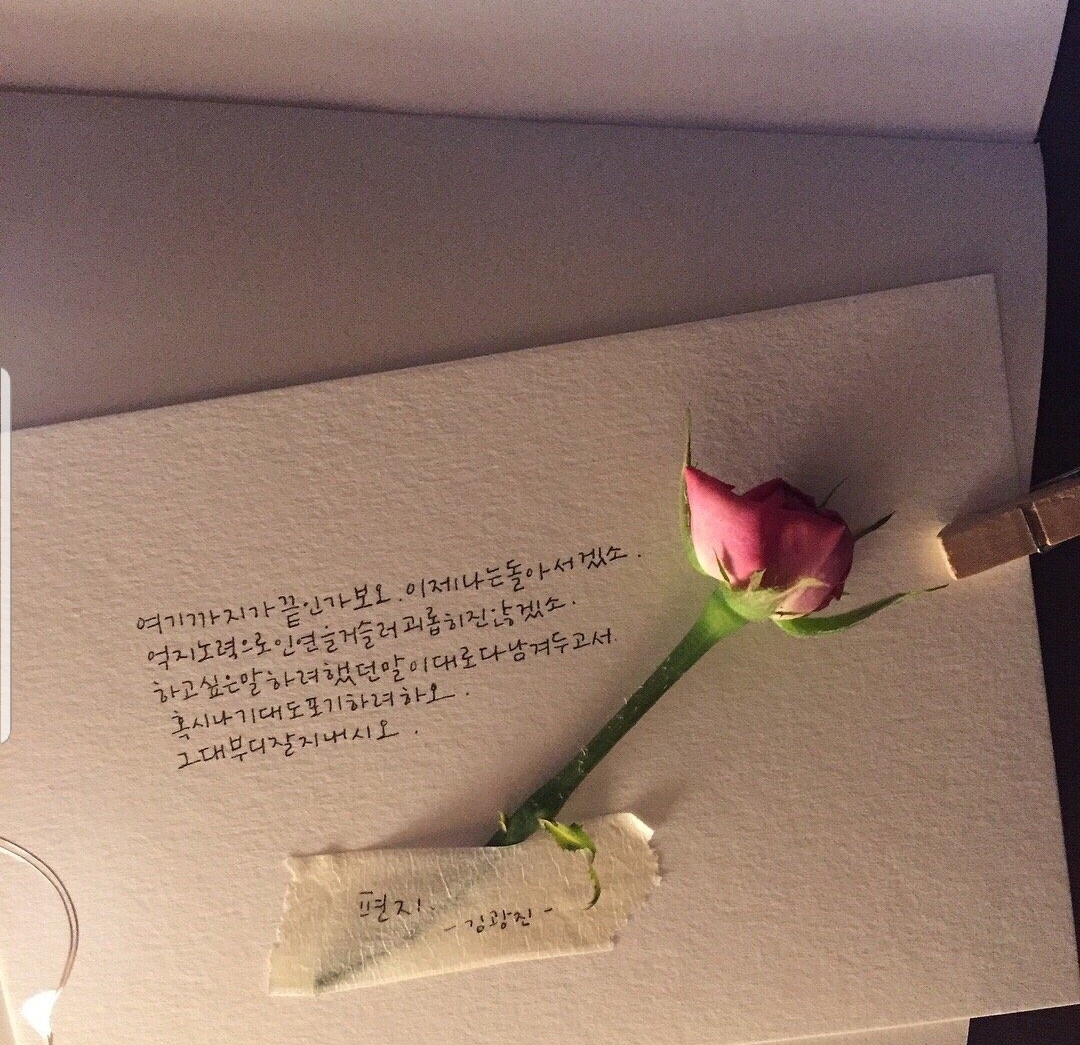 여기까지가 끝인가보오. 이제 나는 돌아서겠소.
억지노력으로 인연을 거슬러 괴롭히진 않겠소.
하고싶은말 하려했던말 이대로 다 남겨두고서.
혹시나 기대도 포기하려하오.
그대 부디 잘지내시오.
편지.
- 김광진 -